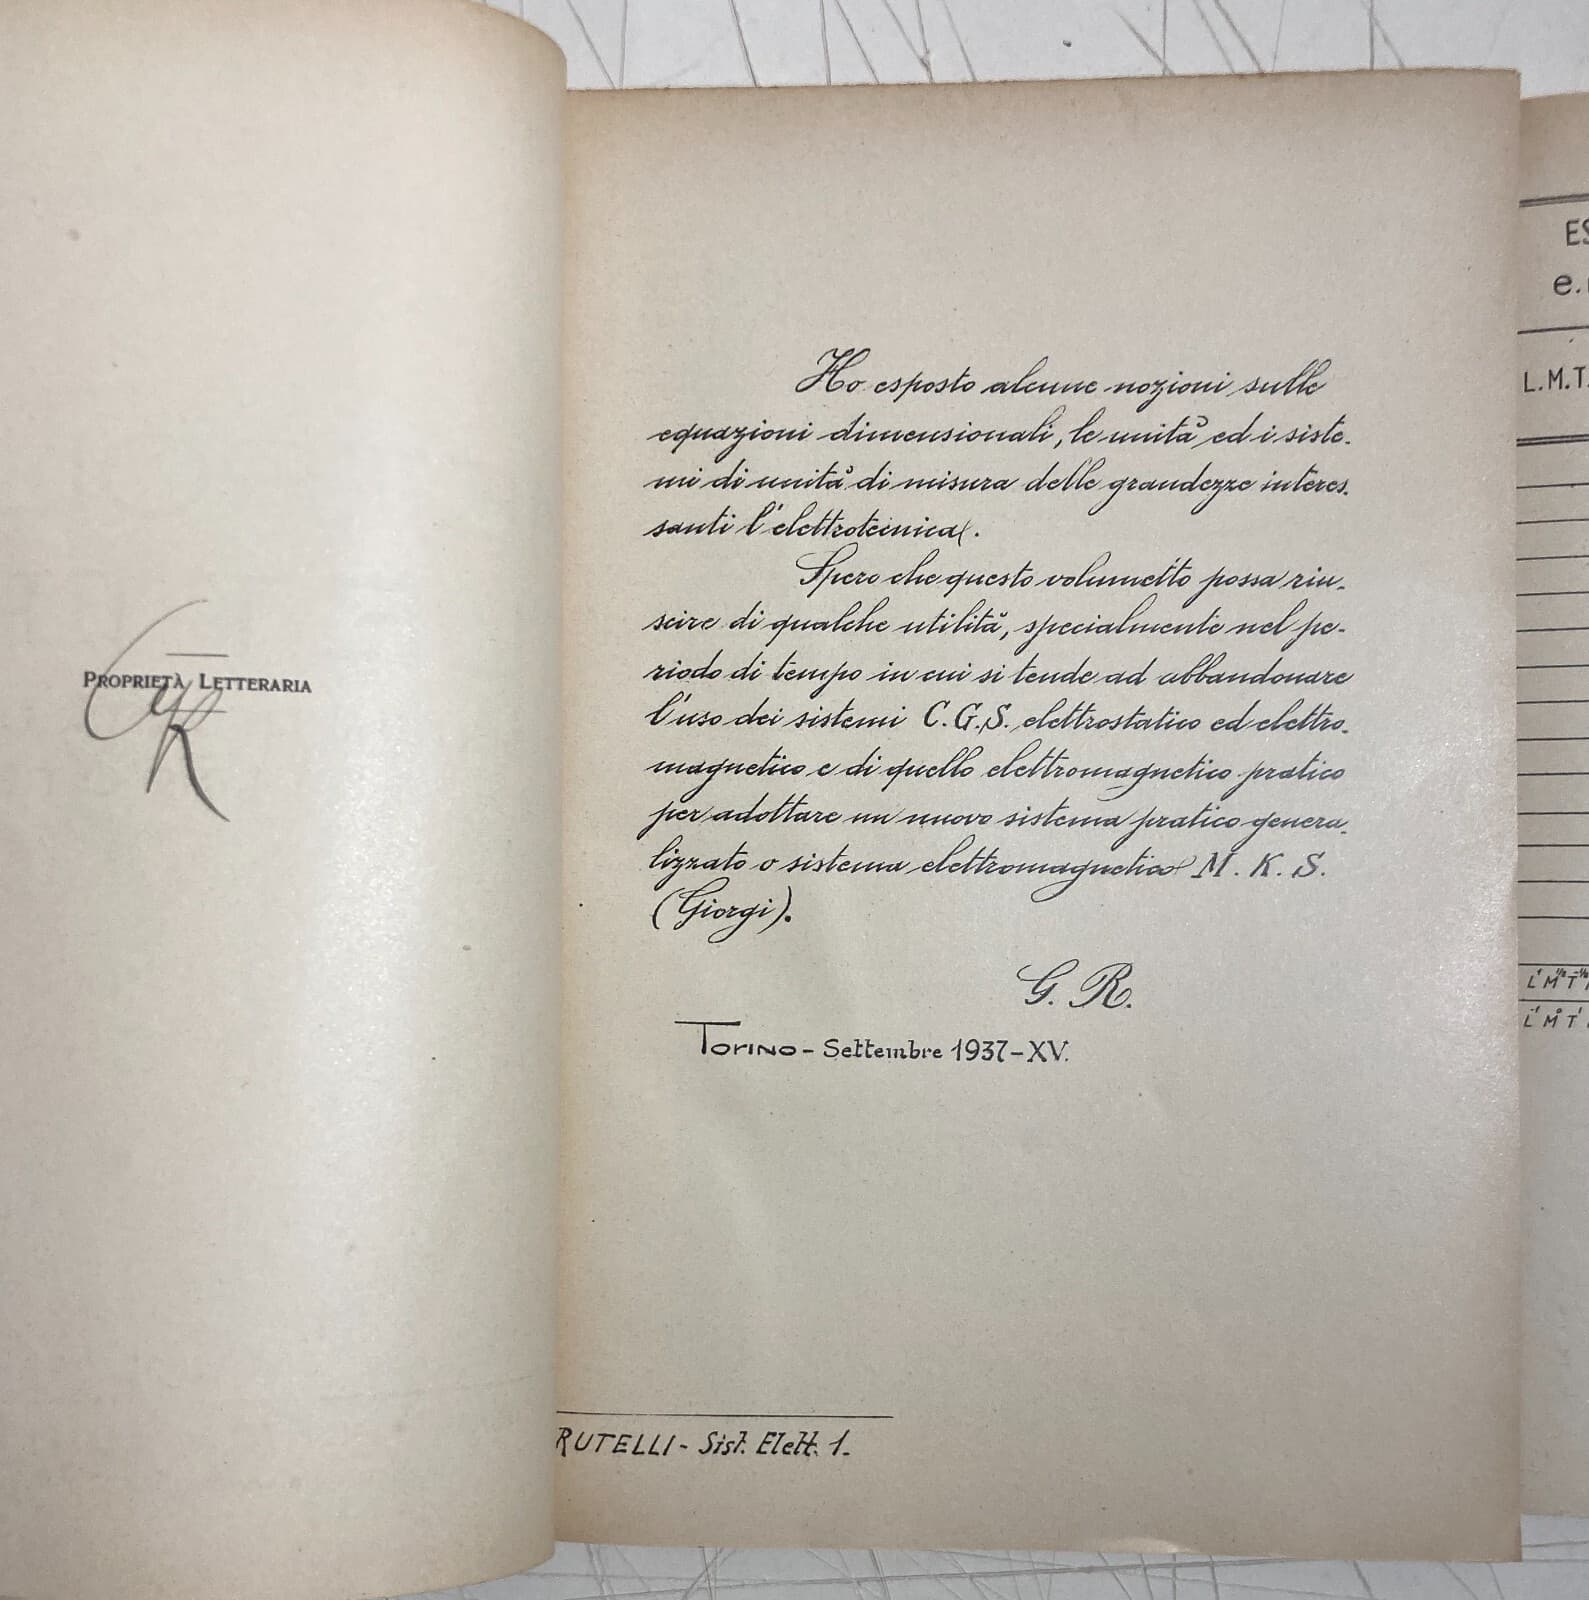 PROPRIETÀ LETTERARIA
GR
Ho esposto alcune nozioni sulle
equazioni dimensionali, le unità ed i siste-
mi di unità di misura delle grandezze interes-
santi l'elettrotecnica.
Spero che questo volumetto possa riu-
scire di qualche utilità, specialmente nel pe-
riodo di tempo in cui si tende ad abbandonare
l'uso dei sistemi C.G.S. elettrostatico ed elettro-
magnetico e di quello elettromagnetico pratico
per adottare un nuovo sistema pratico genera-
lizzato o sistema elettromagnetico M. K. S.
(Giorgi).
G. R.
TORINO - Settembre 1937 - XV.
RUTELLI - Sist. Elett. 1.
ES
e.
L.M.T.